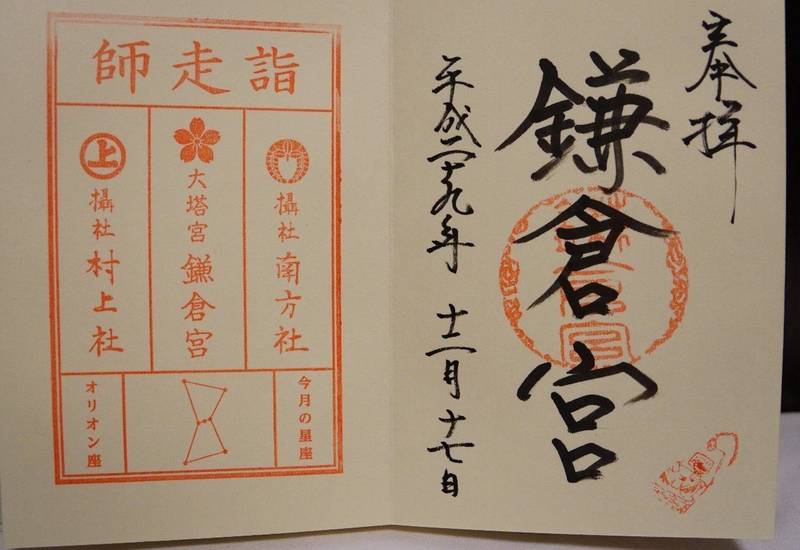 奉拝
鎌倉宮
平成二十九年 十二月十七日
師走詣
攝社 南方社
大塔宮 鎌倉宮
上
攝社 村上社
今月の星座
オリオン座